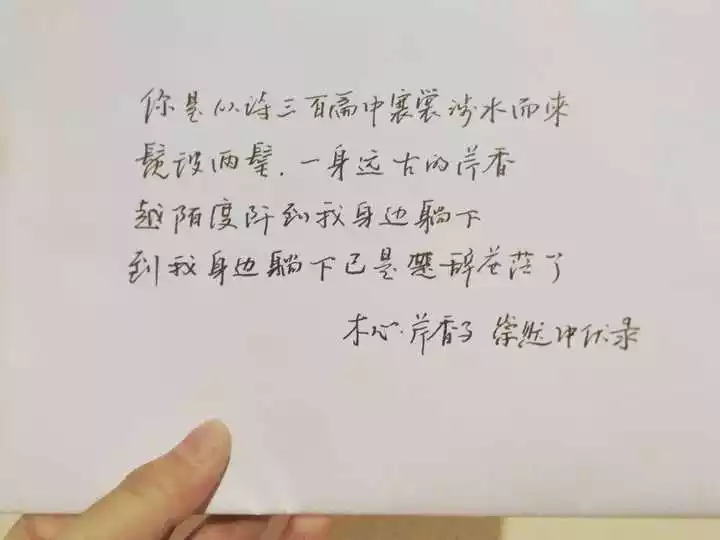 你是从诗三百篇中褰裳涉水而来
髧彼两髦,一身远古的芹香
越陌度阡到我身边躺下
到我身边躺下已是楚辞苍茫了
木心·芹香子 中伏录